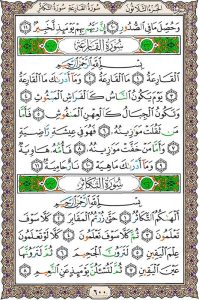 سُورَةُ القَارِعَةِ الجُزْءُ الثَّلَاثُونَ سُورَةُ التَّكَاثُرِ
وَحُصِّلَ مَا فِي ٱلصُّدُورِ ١٠ إِنَّ رَبَّهُم بِهِمْ يَوْمَئِذٍ لَّخَبِيرٌۢ ١١
سُورَةُ القَارِعَةِ
بِسْمِ ٱللَّهِ ٱلرَّحْمَٰنِ ٱلرَّحِيمِ
ٱلْقَارِعَةُ ١ مَا ٱلْقَارِعَةُ ٢ وَمَآ أَدْرَىٰكَ مَا ٱلْقَارِعَةُ
٣ يَوْمَ يَكُونُ ٱلنَّاسُ كَٱلْفَرَاشِ ٱلْمَبْثُوثِ ٤
وَتَكُونُ ٱلْجِبَالُ كَٱلْعِهْنِ ٱلْمَنفُوشِ ٥ فَأَمَّا
مَن ثَقُلَتْ مَوَٰزِينُهُۥ ٦ فَهُوَ فِي عِيشَةٍ رَّاضِيَةٍ
٧ وَأَمَّا مَنْ خَفَّتْ مَوَٰزِينُهُۥ ٨ فَأُمُّهُۥ هَاوِيَةٌ
٩ وَمَآ أَدْرَىٰكَ مَا هِيَهْ ١٠ نَارٌ حَامِيَةٌۢ ١١
سُورَةُ التَّكَاثُرِ
بِسْمِ ٱللَّهِ ٱلرَّحْمَٰنِ ٱلرَّحِيمِ
أَلْهَىٰكُمُ ٱلتَّكَاثُرُ ١ حَتَّىٰ زُرْتُمُ ٱلْمَقَابِرَ ٢ كَلَّا سَوْفَ
تَعْلَمُونَ ٣ ثُمَّ كَلَّا سَوْفَ تَعْلَمُونَ ٤ كَلَّا لَوْ تَعْلَمُونَ
عِلْمَ ٱلْيَقِينِ ٥ لَتَرَوُنَّ ٱلْجَحِيمَ ٦ ثُمَّ لَتَرَوُنَّهَا
عَيْنَ ٱلْيَقِينِ ٧ ثُمَّ لَتُسْـَٔلُنَّ يَوْمَئِذٍ عَنِ ٱلنَّعِيمِ ٨
٦٠٠